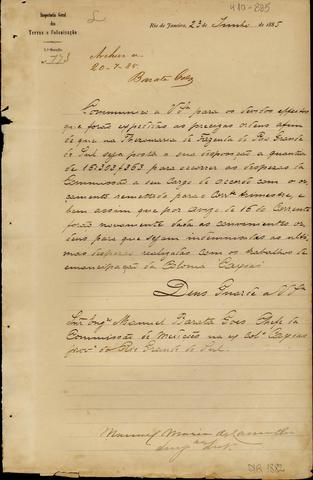 410-885
Inspectoria Geral
das
Terras e Colonisação
Rio de Janeiro, 23 de Junho de 1885
Nº 773
Archive-se
20-7-85
Barata Góes
Communico a Vª Sª para os devidos effeitos
que forão expedidas as precisas ordens afim
de que na Thesouraria de Fazenda do Rio Grande
do Sul seja posta a sua disposição a quantia
de 15:303$353 para occorrer as despezas da
Commissão a seu cargo de accordo com o or-
çamento remettido para o Corrº trimestre, e
bem assim que por Aviso de 16 do Corrente
forão novamente dadas as convenientes or-
dens para que sejam indemnisadas as ulti-
mas despezas realizadas com os trabalhos da
emancipação da Colonia Caxias
Deus Guarde a Vª Sª
Snr. Engº Manuel Barata Goes Chefe da
Commissão de Medições na ex Colª Caxias
provª do Rio Grande do Sul.
Manuel Maria de Carvalho
DIR 1882